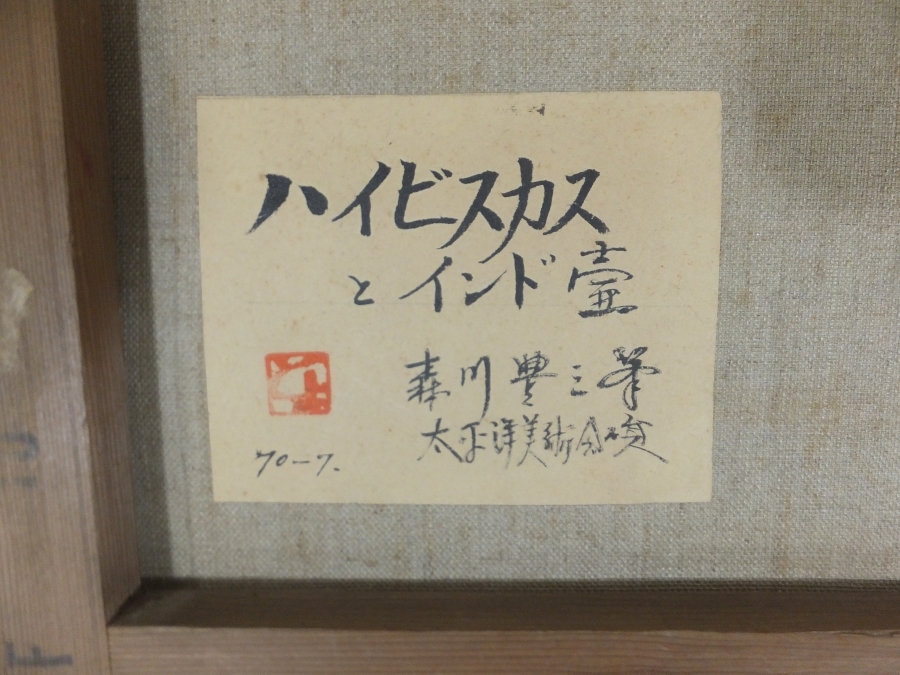 ハイビスカス
とインド壷
森川豊三筆
太平洋美術会
70-7.